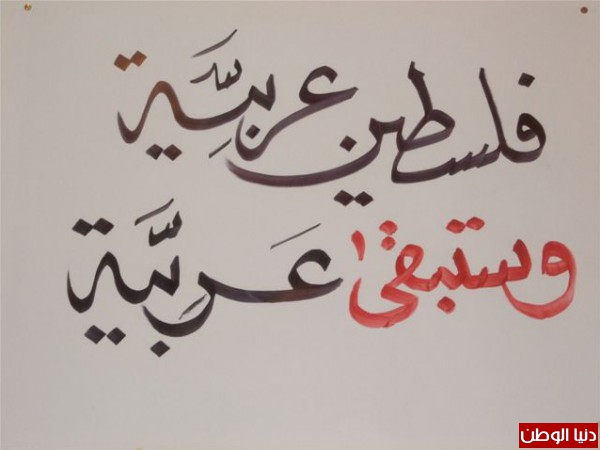 فلسطين عربيّة
وستبقى عَربيّة
دنيا الوطن